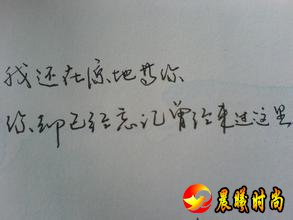 我还在原地等你
你却已经忘记曾经来过这里
晨曦时尚